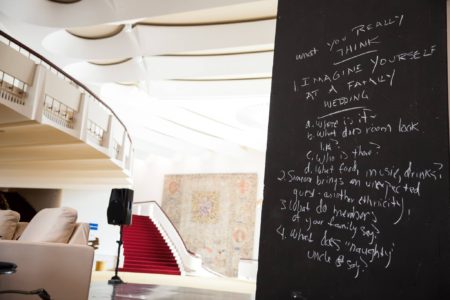 what you REALLY
THINK
1. IMAGINE YOURSELF
AT A FAMILY
WEDDING
a. Where is it?
b. What does room look
like?
c. Who is there?
d. What food, music, drinks?
2. Someone brings an unexpected
guest - another ethnicity!
3. What do members
of your family say?
4. What does "naughty"
uncle say?